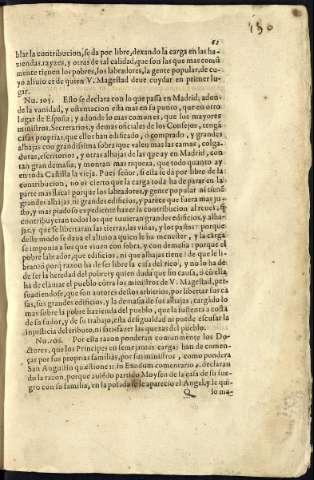 150
61
blar la contribucion, se da por libre, dexando la carga en las ha-
ziendas, rayzes, y otras de tal calidad, que son las que mas comũ
mente tienen los pobres, los labradores, la gente popular, de cu-
yo aliuio, et de quien V. Magestad deue cuydar en primer lu-
gar.
Nu. 105. Esto se declara con lo que passa en Madrid, aden-
de la vanidad, y ostentacion esta mas en su punto, que en otro
lugar de España; y adonde lo mas comun es, que los mayores
ministros, Secretarios, y demas oficiales de los Consejos, tengã
casas propria, que ellos han edificado, o comprado, y grandes
alhajas con grandissima sobra: que valen mas las camas, colga-
duras, escritorios, y otras alhajas de las que ay en Madrid, con-
tan gran demasia; y montan mas riqueza, que todo quanto ay
en toda Castilla la vieja. Pues señor, si esta se dà por libre de la
contribucion, no es cierto que la carga toda ha de parar en la
parte mas flaca: porque los labradores, y gente popular ni tienẽ
grandes alhajas ni grandes edificios, y parece que fuera mas ju-
sto, y mas piadoso expediente hazer la contribucion al reues, si
contribuyeran todos los que tuuieran grandes edificios, y alha-
jas, y que se libertaran las tierras, las viñas, y los pastos: porque
deste modo se daua el aliuio a quien le ha menester, y la carga
se imponia a los que viuen con sobra, y con demasia: porque el
pobre labrador, que edificios, ni que alhajas tiene? de que le li-
braron? por q̃ razon ha de ser libre la casa del rico, y no lo ha de
ser la heredad del pobre: y quien duda que sin causa, o cõ ella
ha de clamar el pueblo cõtra los ministros de V. Magestad, per-
suadiendose, que son autores destos arbitrios, por libertar sus ca
sas, sus grandes edificios, y la demasia de sus alhajas, cargãdo lo
mas sobre la pobre hazienda del pueblo, que la sustenta a costa
de su sudor, y de su trabajo, esta desigualdad ni puede escusar la
injusticia del tributo, ni satisfazer las quexas del pueblo.
Nu. 106. Por esta razon ponderan comunmente los Do-
ctores, que los Principes en semejantes cargas han de comen-
çar por sus propias familias, por sus ministros, como pondera
San Augustin quæstione 11. in Exodum comentario 2. declaran-
do la razon, porque auiẽdo partido Moysen de la casa de su sue-
gro con su familia, en la posada se le aparecio el Angel, y le qui-
Q lo ma-